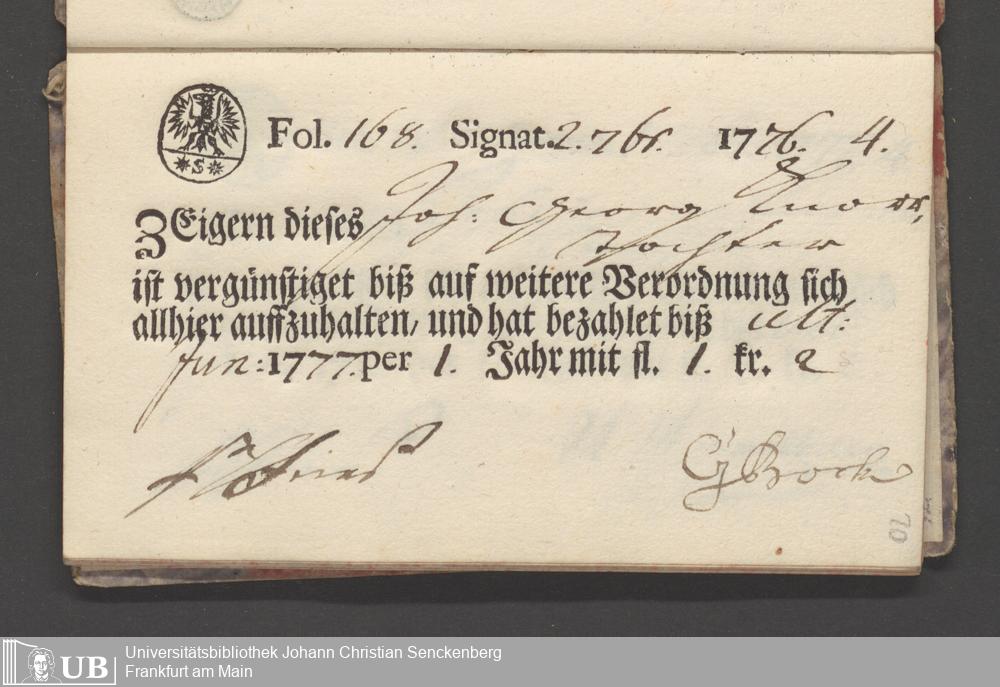 Fol. 168. Signat. 2. 7br. 1776. 4.
S
ZEigern dieses Joh: Georg Knorr,
Tochter
ist vergünstiget biß auf weitere Verordnung sich
allhier auffzuhalten, und hat bezahlet biß ult:
Jun: 1777. per 1. Jahr mit fl. 1. kr. 2
GBock
70
UB
Universitätsbibliothek Johann Christian Senckenberg
Frankfurt am Main